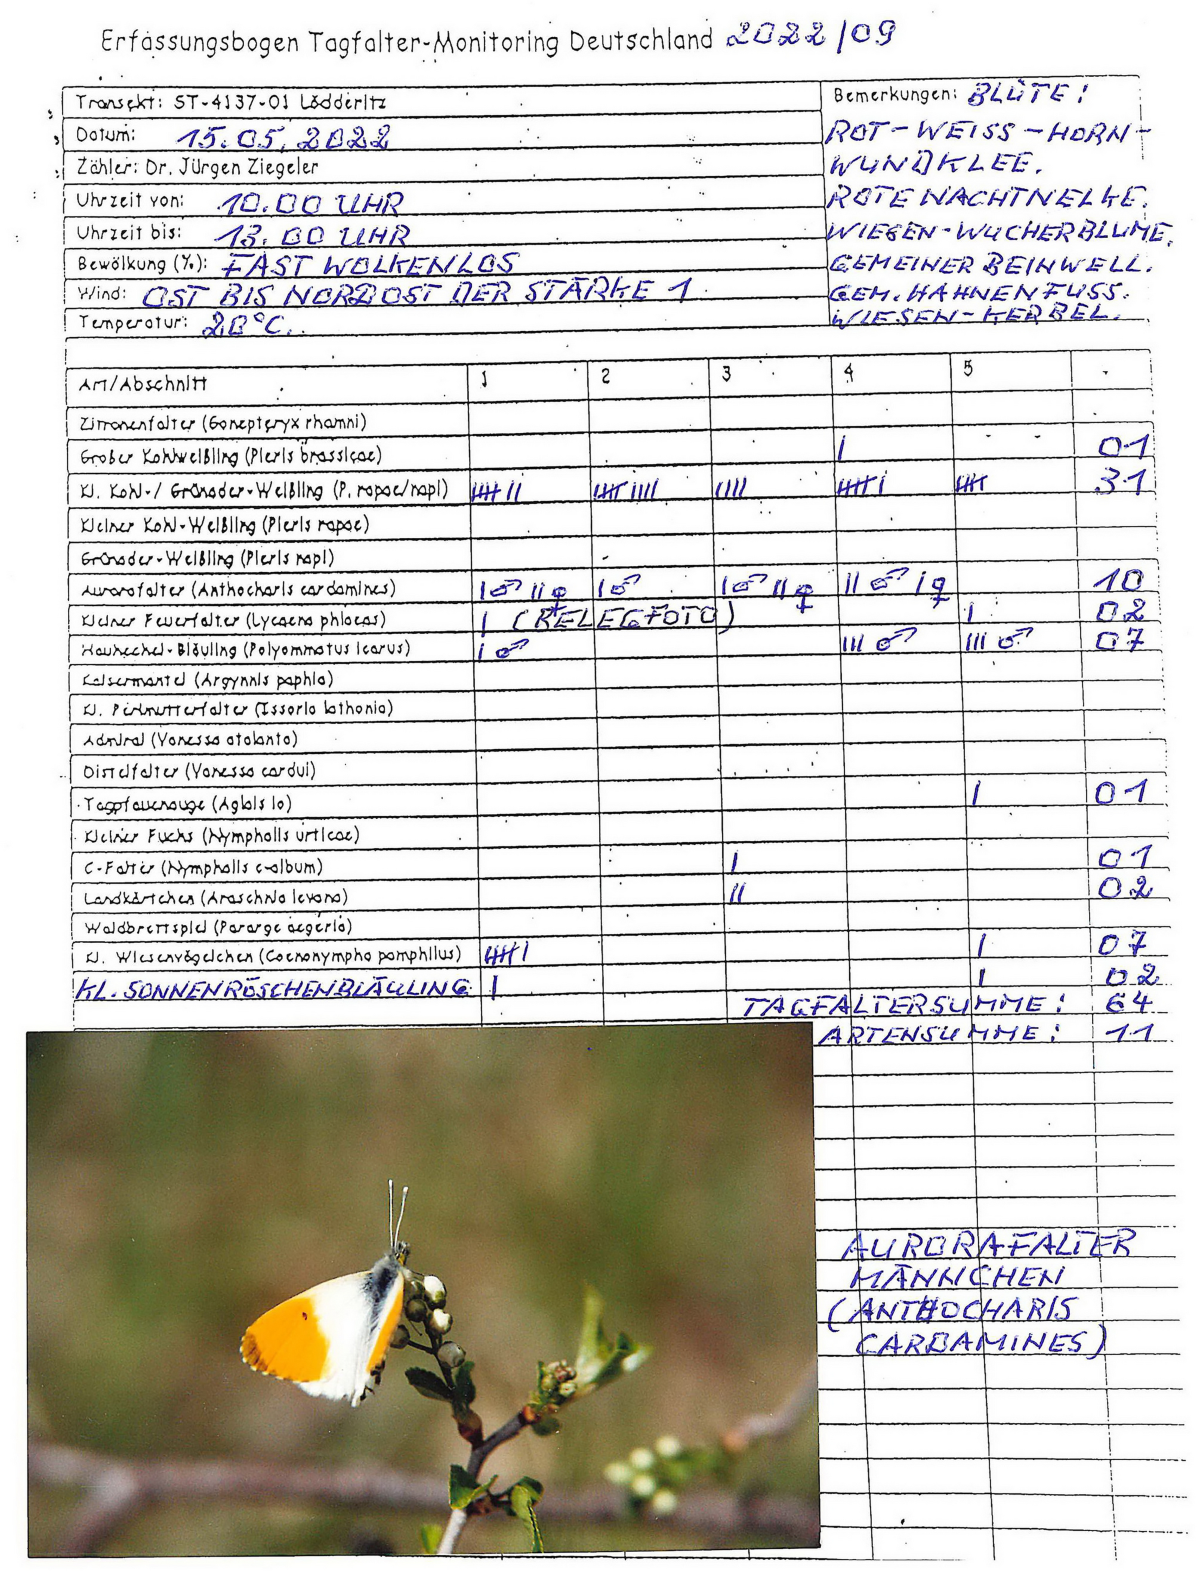 Erfassungsbogen Tagfalter-Monitoring Deutschland 2022/09
Transekt: ST-4137-01 Lödderitz
Datum: 15.05.2022
Zähler: Dr. Jürgen Ziegeler
Uhrzeit von: 10.00 UHR
Uhrzeit bis: 13.00 UHR
Bewölkung (%): FAST WOLKENLOS
Wind: OST BIS NORDOST DER STÄRKE 1
Temperatur: 20°C.
Bemerkungen: BLÜTE:
ROT-WEISS-HORN-
WUNDKLEE.
ROTE NACHTNELKE.
WIESEN-WUCHERBLUME.
GEMEINER BEINWELL.
GEM. HAHNENFUSS.
WIESEN-KERBEL.
Art/Abschnitt 1 2 3 4 5
Zitronenfalter (Gonepteryx rhamni)
Großer Kohlweißling (Pieris brassicae) I 01
Kl. Kohl-/ Grünader-Weißling (P. rapae/napi) IIIII II IIIII IIII IIII IIIII I IIIII 31
Kleiner Kohl-Weißling (Pieris rapae)
Grünader-Weißling (Pieris napi)
Aurorafalter (Anthocharis cardamines) I♂ II♀ I♂ I♂ II♀ II♂ I♀ 10
Kleiner Feuerfalter (Lycaena phlaeas) I (BELEGFOTO) I 02
Hauhechel-Bläuling (Polyommatus icarus) I♂ III♂ III♂ 07
Kaisermantel (Argynnis paphia)
Kl. Perlmutterfalter (Issoria lathonia)
Admiral (Vanessa atalanta)
Distelfalter (Vanessa cardui)
Tagpfauenauge (Aglais io) I 01
Kleiner Fuchs (Nymphalis urticae)
C-Falter (Nymphalis c-album) I 01
Landkärtchen (Araschnia levana) II 02
Waldbrettspiel (Pararge aegeria)
Kl. Wiesenvögelchen (Coenonympha pamphilus) IIIII I I 07
KL. SONNENRÖSCHENBLÄULING I I 02
TAGFALTERSUMME: 64
ARTENSUMME: 11
AURORAFALTER
MÄNNCHEN
(ANTHOCHARIS
CARDAMINES)